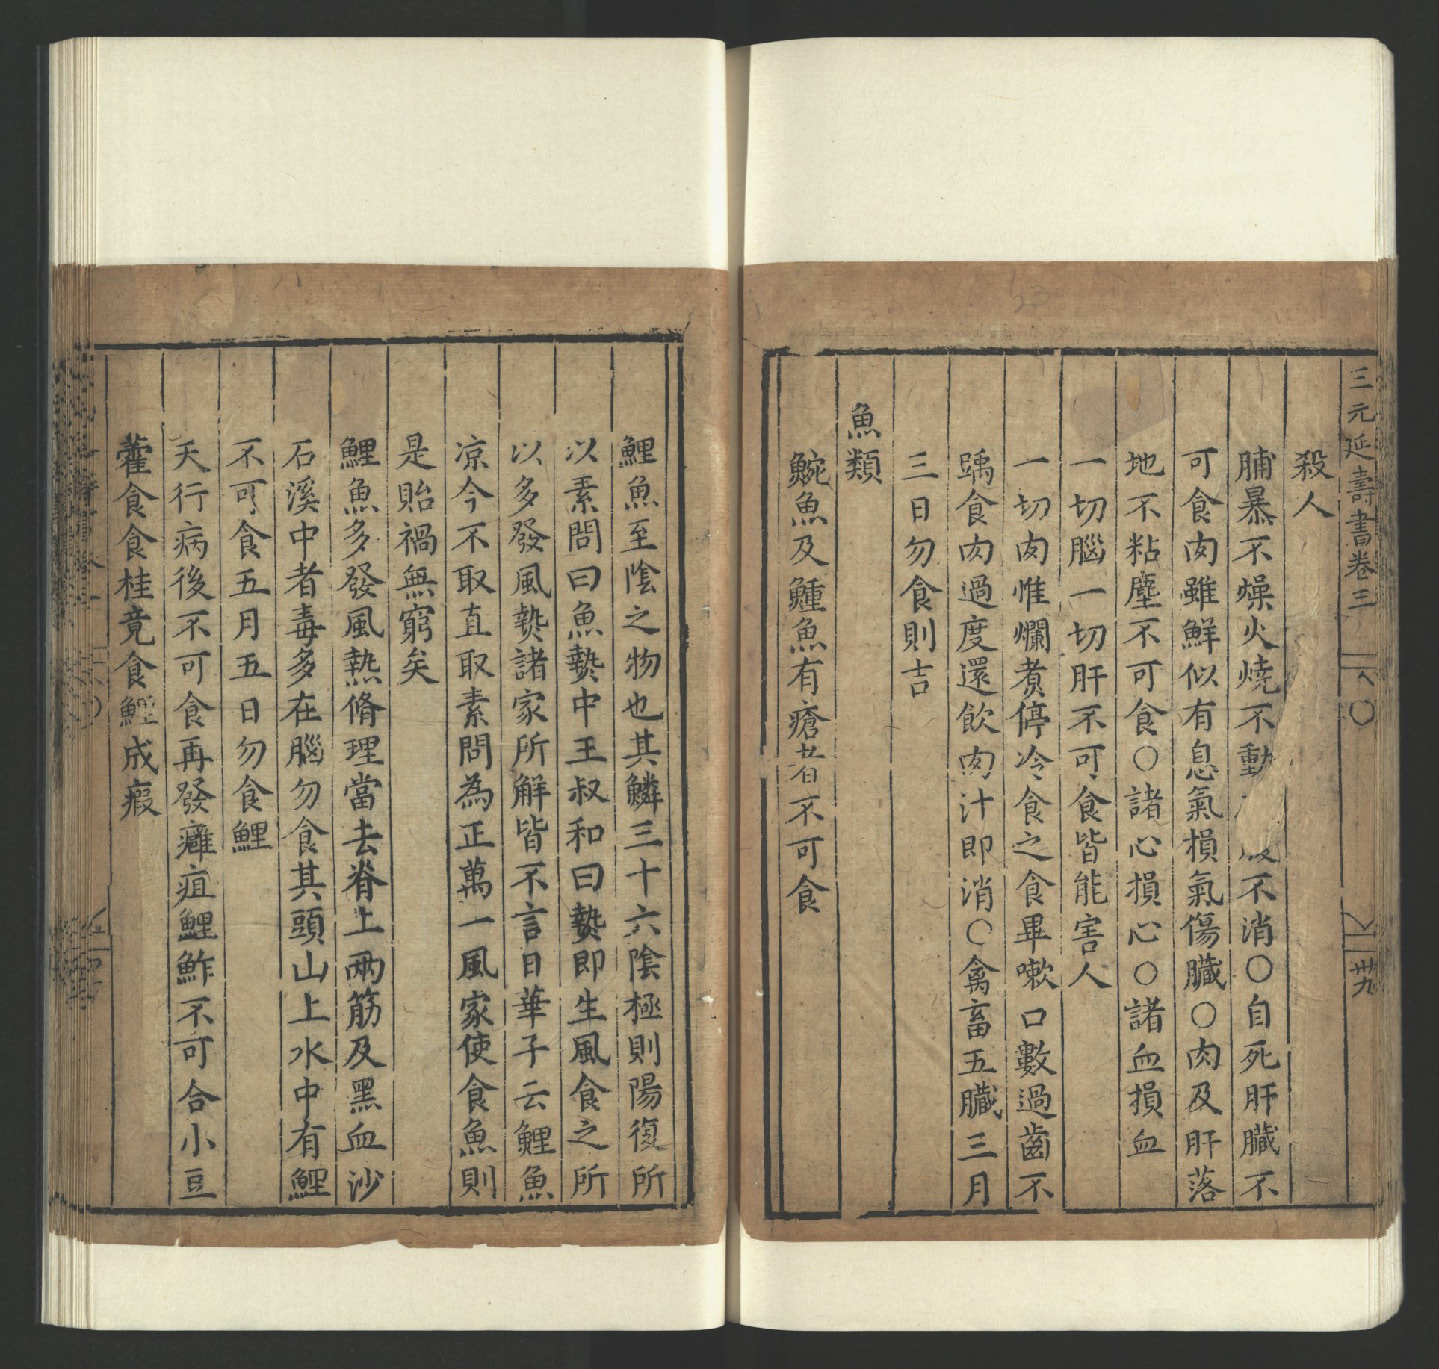 三元延壽書卷三
卅九
殺人
脯暴不燥火燒不動 不消〇自死肝臟不
可食肉雖鮮似有息氣損氣傷臟〇肉及肝落
地不粘塵不可食〇諸心損心〇諸血損血
一切腦一切肝不可食皆能害人
一切肉惟爛煑停冷食之食畢嗽口數過齒不
齲食肉過度還飲肉汁即消〇禽畜五臟三月
三日勿食則吉
魚類
鯇魚及鱓魚有瘡者不可食
鯉魚至陰之物也其鱗三十六陰極則陽復所
以素問曰魚𤍠中王叔和曰𤍠即生風食之所
以多發風𤍠諸家所解皆不言日華子云鯉魚
凉今不取直取素問為正萬一風家使食魚則
是貽禍無窮矣
鯉魚多發風熱脩理當去脊上兩筋及黑血沙
石溪中者毒多在腦勿食其頭山上水中有鯉
不可食五月五日勿食鯉
天行病後不可食再發癰疽鯉鮓不可合小豆
藿食食桂竟食鯉成瘕